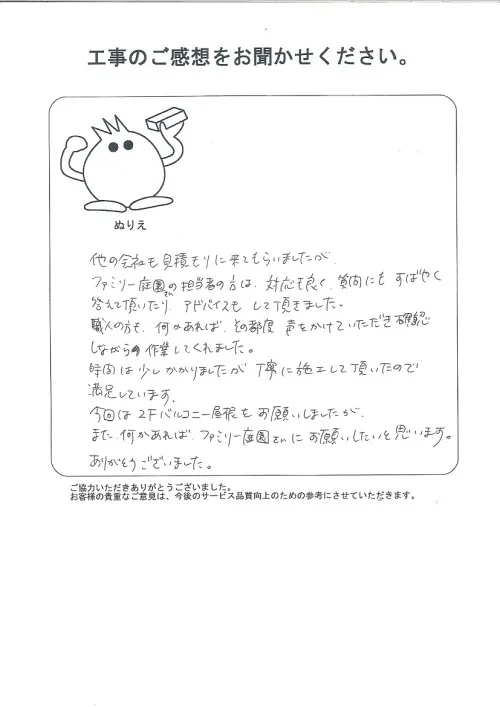 工事のご感想をお聞かせください。
ぬりえ
他の会社も見積もりに来てもらいましたが、
ファミリー庭園さんの担当者の方は、対応も良く、質問にもすばやく
答えて頂いたり、アドバイスもして頂きました。
職人の方も、何かあれば、その都度 声をかけていただき確認
しながらの作業してくれました。
時間は少しかかりましたが丁寧に施工して頂いたので
満足しています。
今回は2Fバルコニー屋根をお願いしましたが、
また、何かあれば、ファミリー庭園さんにお願いしたいと思います。
ありがとうございました。
ご協力いただきありがとうございました。
お客様の貴重なご意見は、今後のサービス品質向上のための参考にさせていただきます。